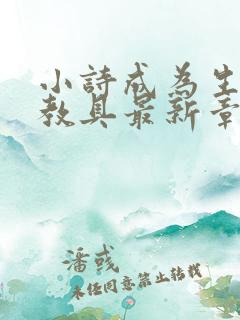 小詩成為生
教具最新章
潘彧
未经同意禁止转载